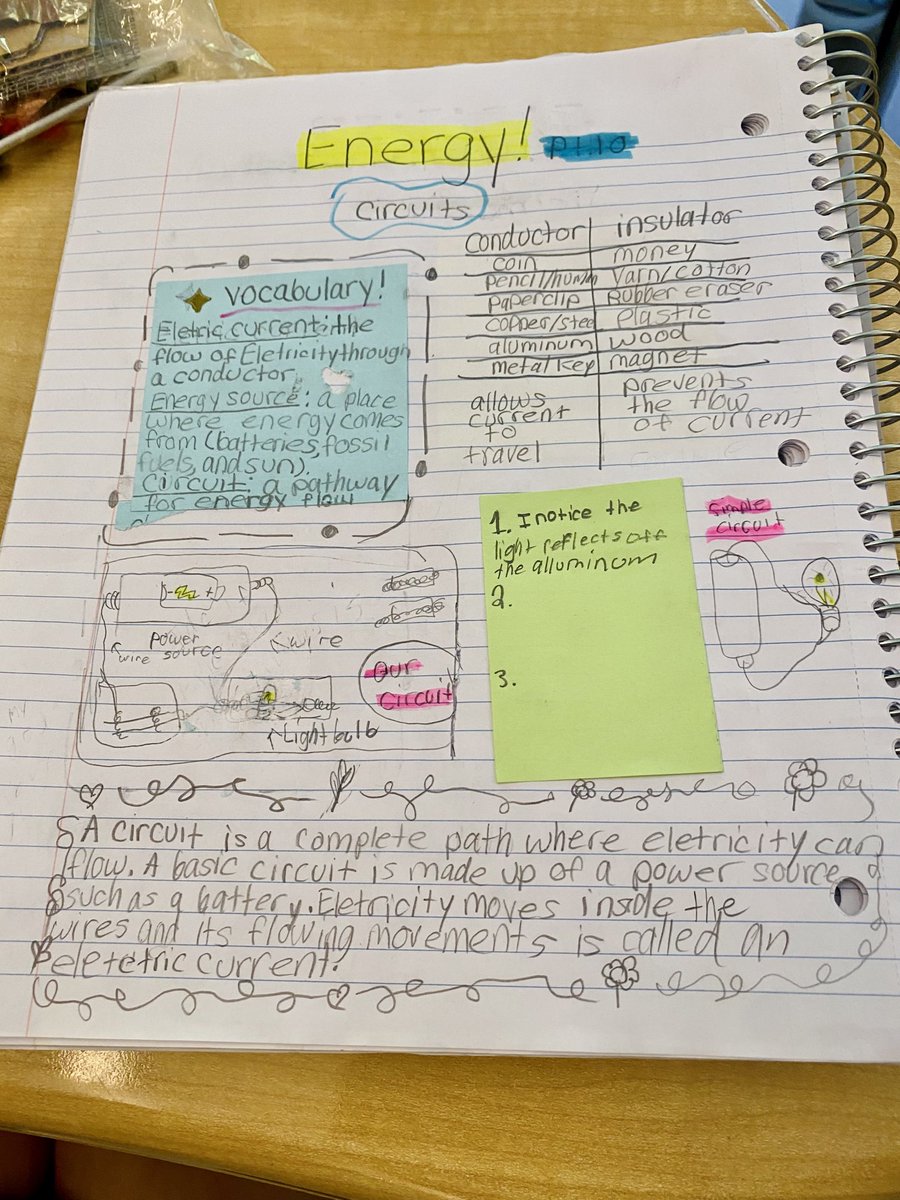 Energy! Pt.10
Circuits
conductor insulator
coin money
pencil/human Yarn/cotton
paperclip Rubber eraser
copper/steel plastic
aluminum wood
metal key magnet
allows prevents
current the flow
to of current
travel
vocabulary!
Eletric current: the
flow of Eletricity through
a conductor
Energy source: a place
where energy comes
from (batteries, fossil
fuels, and sun).
Circuit: a pathway
for energy flow
1. I notice the
light reflects off
the alluminum
2.
3.
Simple
Circuit
- +
Power
source
wire
wire
Our
Circuit
Lightbulb
A circuit is a complete path where eletricity can
flow. A basic circuit is made up of a power source
such as a battery. Eletricity moves inside the
wires and its flowing movements is called an
eletetric current.